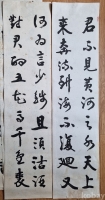 君不見黃河之水天上
來奔流到海不復迴又
何為言少錢且須沽酒
對君酌五花馬千金裘